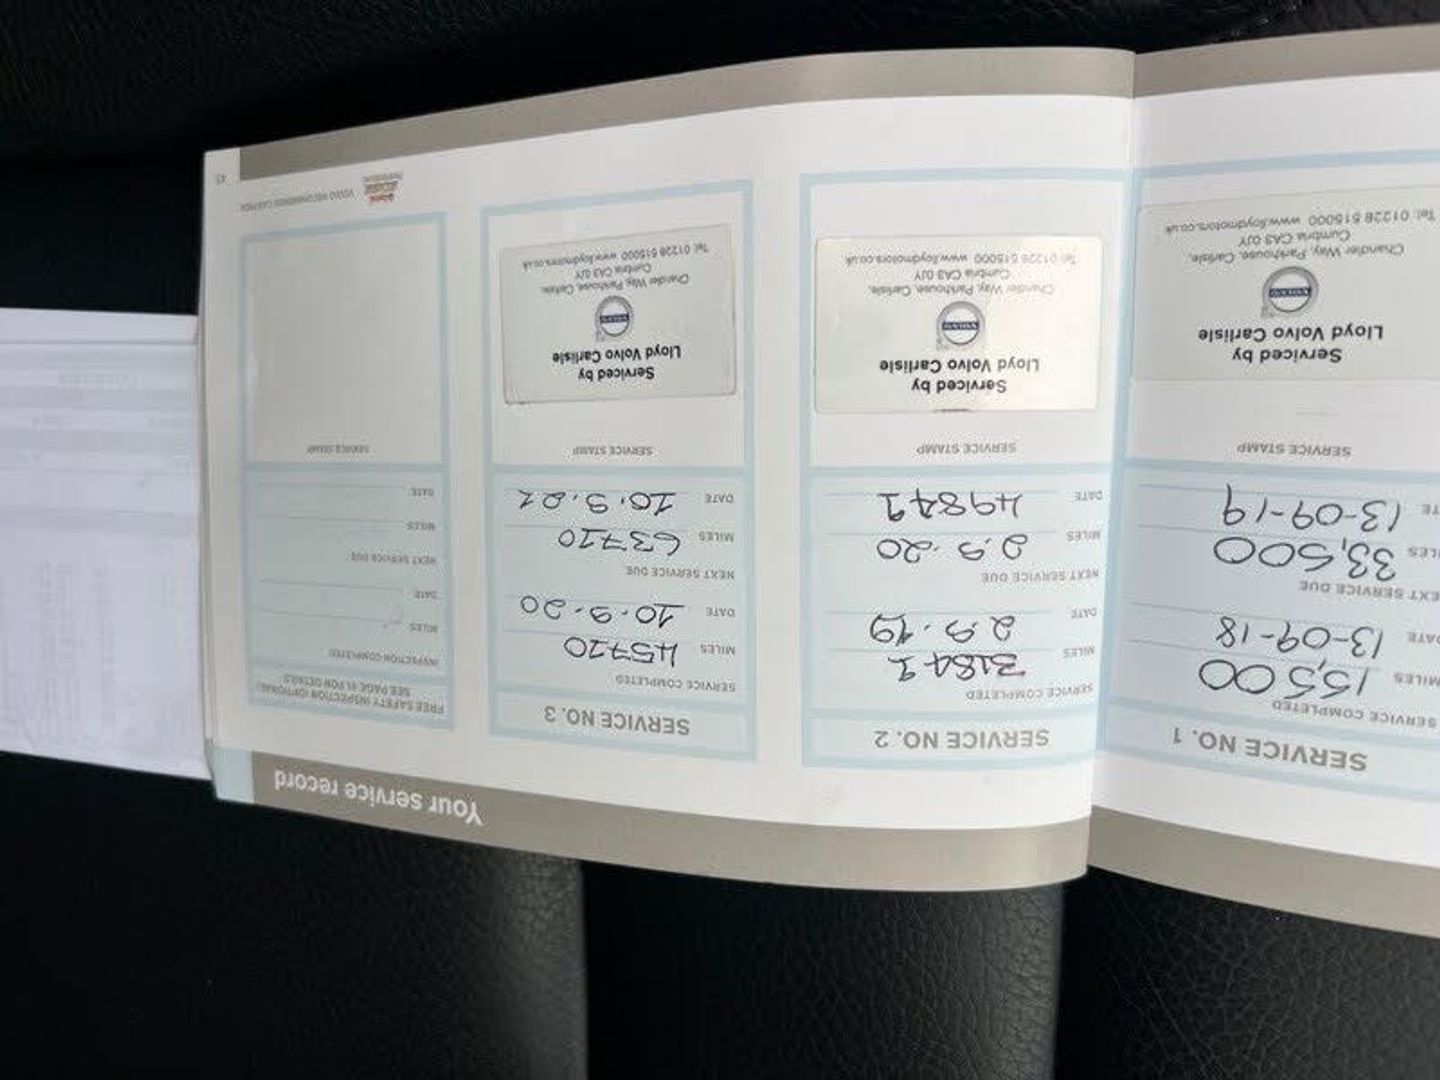 Your service record
SERVICE NO. 1
SERVICE COMPLETED
MILES 15,500
DATE 13-09-18
EXT SERVICE DUE
LES 33,500
TE 13-09-19
SERVICE STAMP
Serviced by
Lloyd Volvo Carlisle
VOLVO
Chandler Way, Parkhouse, Carlisle,
Cumbria CA3 0JY
Tel: 01228 515000 www.lloydmotors.co.uk
SERVICE NO. 2
SERVICE COMPLETED
MILES 31841
DATE 2.9.19
NEXT SERVICE DUE
MILES 2.9.20
DATE 49841
SERVICE STAMP
Serviced by
Lloyd Volvo Carlisle
VOLVO
Chandler Way, Parkhouse, Carlisle,
Cumbria CA3 0JY
Tel: 01228 515000 www.lloydmotors.co.uk
SERVICE NO. 3
SERVICE COMPLETED
MILES 45710
DATE 10.9.20
NEXT SERVICE DUE
MILES 63710
DATE 10.9.21
SERVICE STAMP
Serviced by
Lloyd Volvo Carlisle
VOLVO
Chandler Way, Parkhouse, Carlisle,
Cumbria CA3 0JY
Tel: 01228 515000 www.lloydmotors.co.uk
FREE SAFETY INSPECTION (OPTIONAL)
SEE PAGE 41 FOR DETAILS
INSPECTION COMPLETED
MILES
DATE
NEXT SERVICE DUE
MILES
DATE
SERVICE STAMP
VOLVO RECOMMENDS CASTROL
45